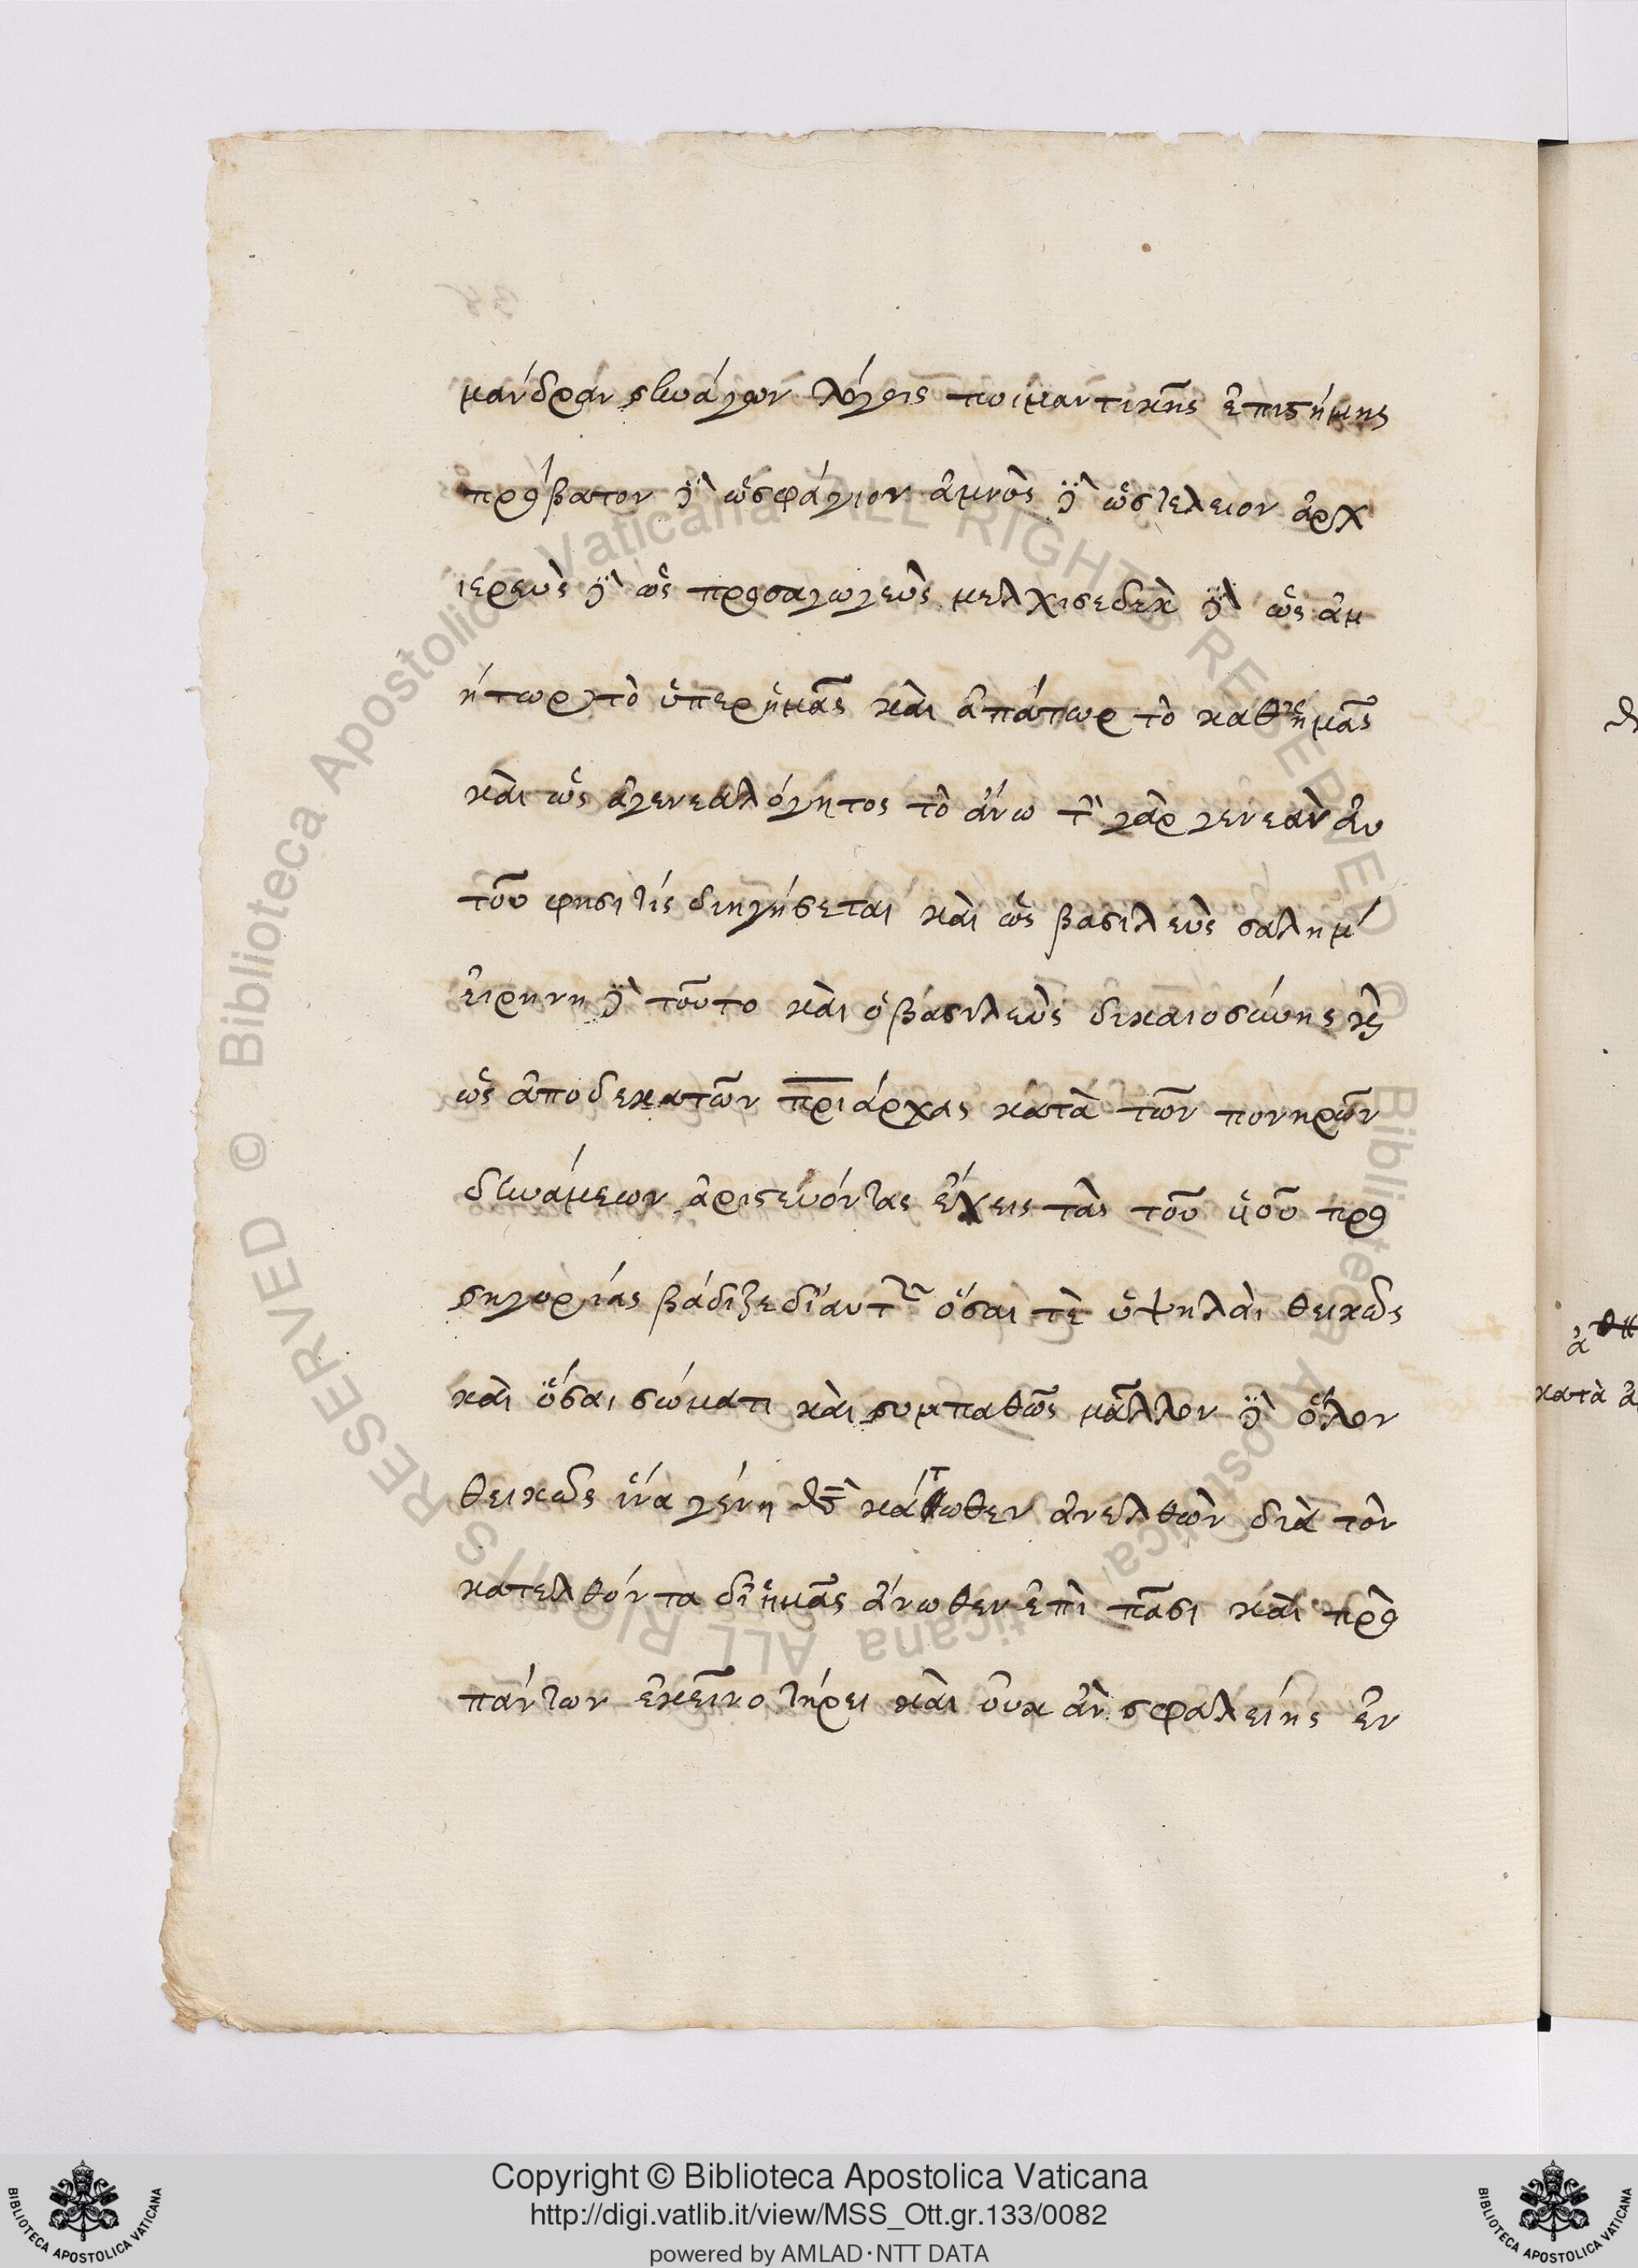 μάνδραν συνάγων λόγοις ποιμαντικῆς ἐπιστήμης
πρόβατον δὲ ὡς σφάγιον ἀμνὸς δὲ ὡς τέλειον ἀρχ
ιερεὺς δὲ ὡς προσαγωγεὺς μελχισεδὲκ δὲ ὡς ἀμ
ήτωρ τὸ ὑπερ ἡμᾶς καὶ ἀπάτωρ τὸ καθ ἡμᾶς
καὶ ὡς ἀγενεαλόγητος τὸ ἄνω τὴν γὰρ γενεὰν αὐ
τοῦ φησι τίς διηγήσεται καὶ ὡς βασιλεὺς σαλημ
εἰρηνη δὲ τοῦτο καὶ ὁ βασιλεὺς δικαιοσύνης καὶ
ὡς ἀποδεκατῶν πριάρχας κατὰ τῶν πονηρῶν
δυνάμεων ἀριστεύοντας ἔχεις τὰς τοῦ υἱοῦ προ
σηγορίας βάδιζε δι αὐτῶν ὅσαι τὲ ὑψηλαὶ θεικῶς
καὶ ὅσαι σώματι καὶ συμπαθῶς μᾶλλον δὲ ὅλον
θεικῶς ἵνα γένη θς κάτωθεν ἀνελθὼν διὰ τὸν
κατελθόντα δι ἡμᾶς ἄνωθεν ἐπὶ πᾶσι καὶ πρὸ
πάντων ἐκεῖνο τήρει καὶ οὐκ ἂν σφαλείης ἐν
κατὰ
Copyright © Biblioteca Apostolica Vaticana
http://digi.vatlib.it/view/MSS_Ott.gr.133/0082
powered by AMLAD·NTT DATA